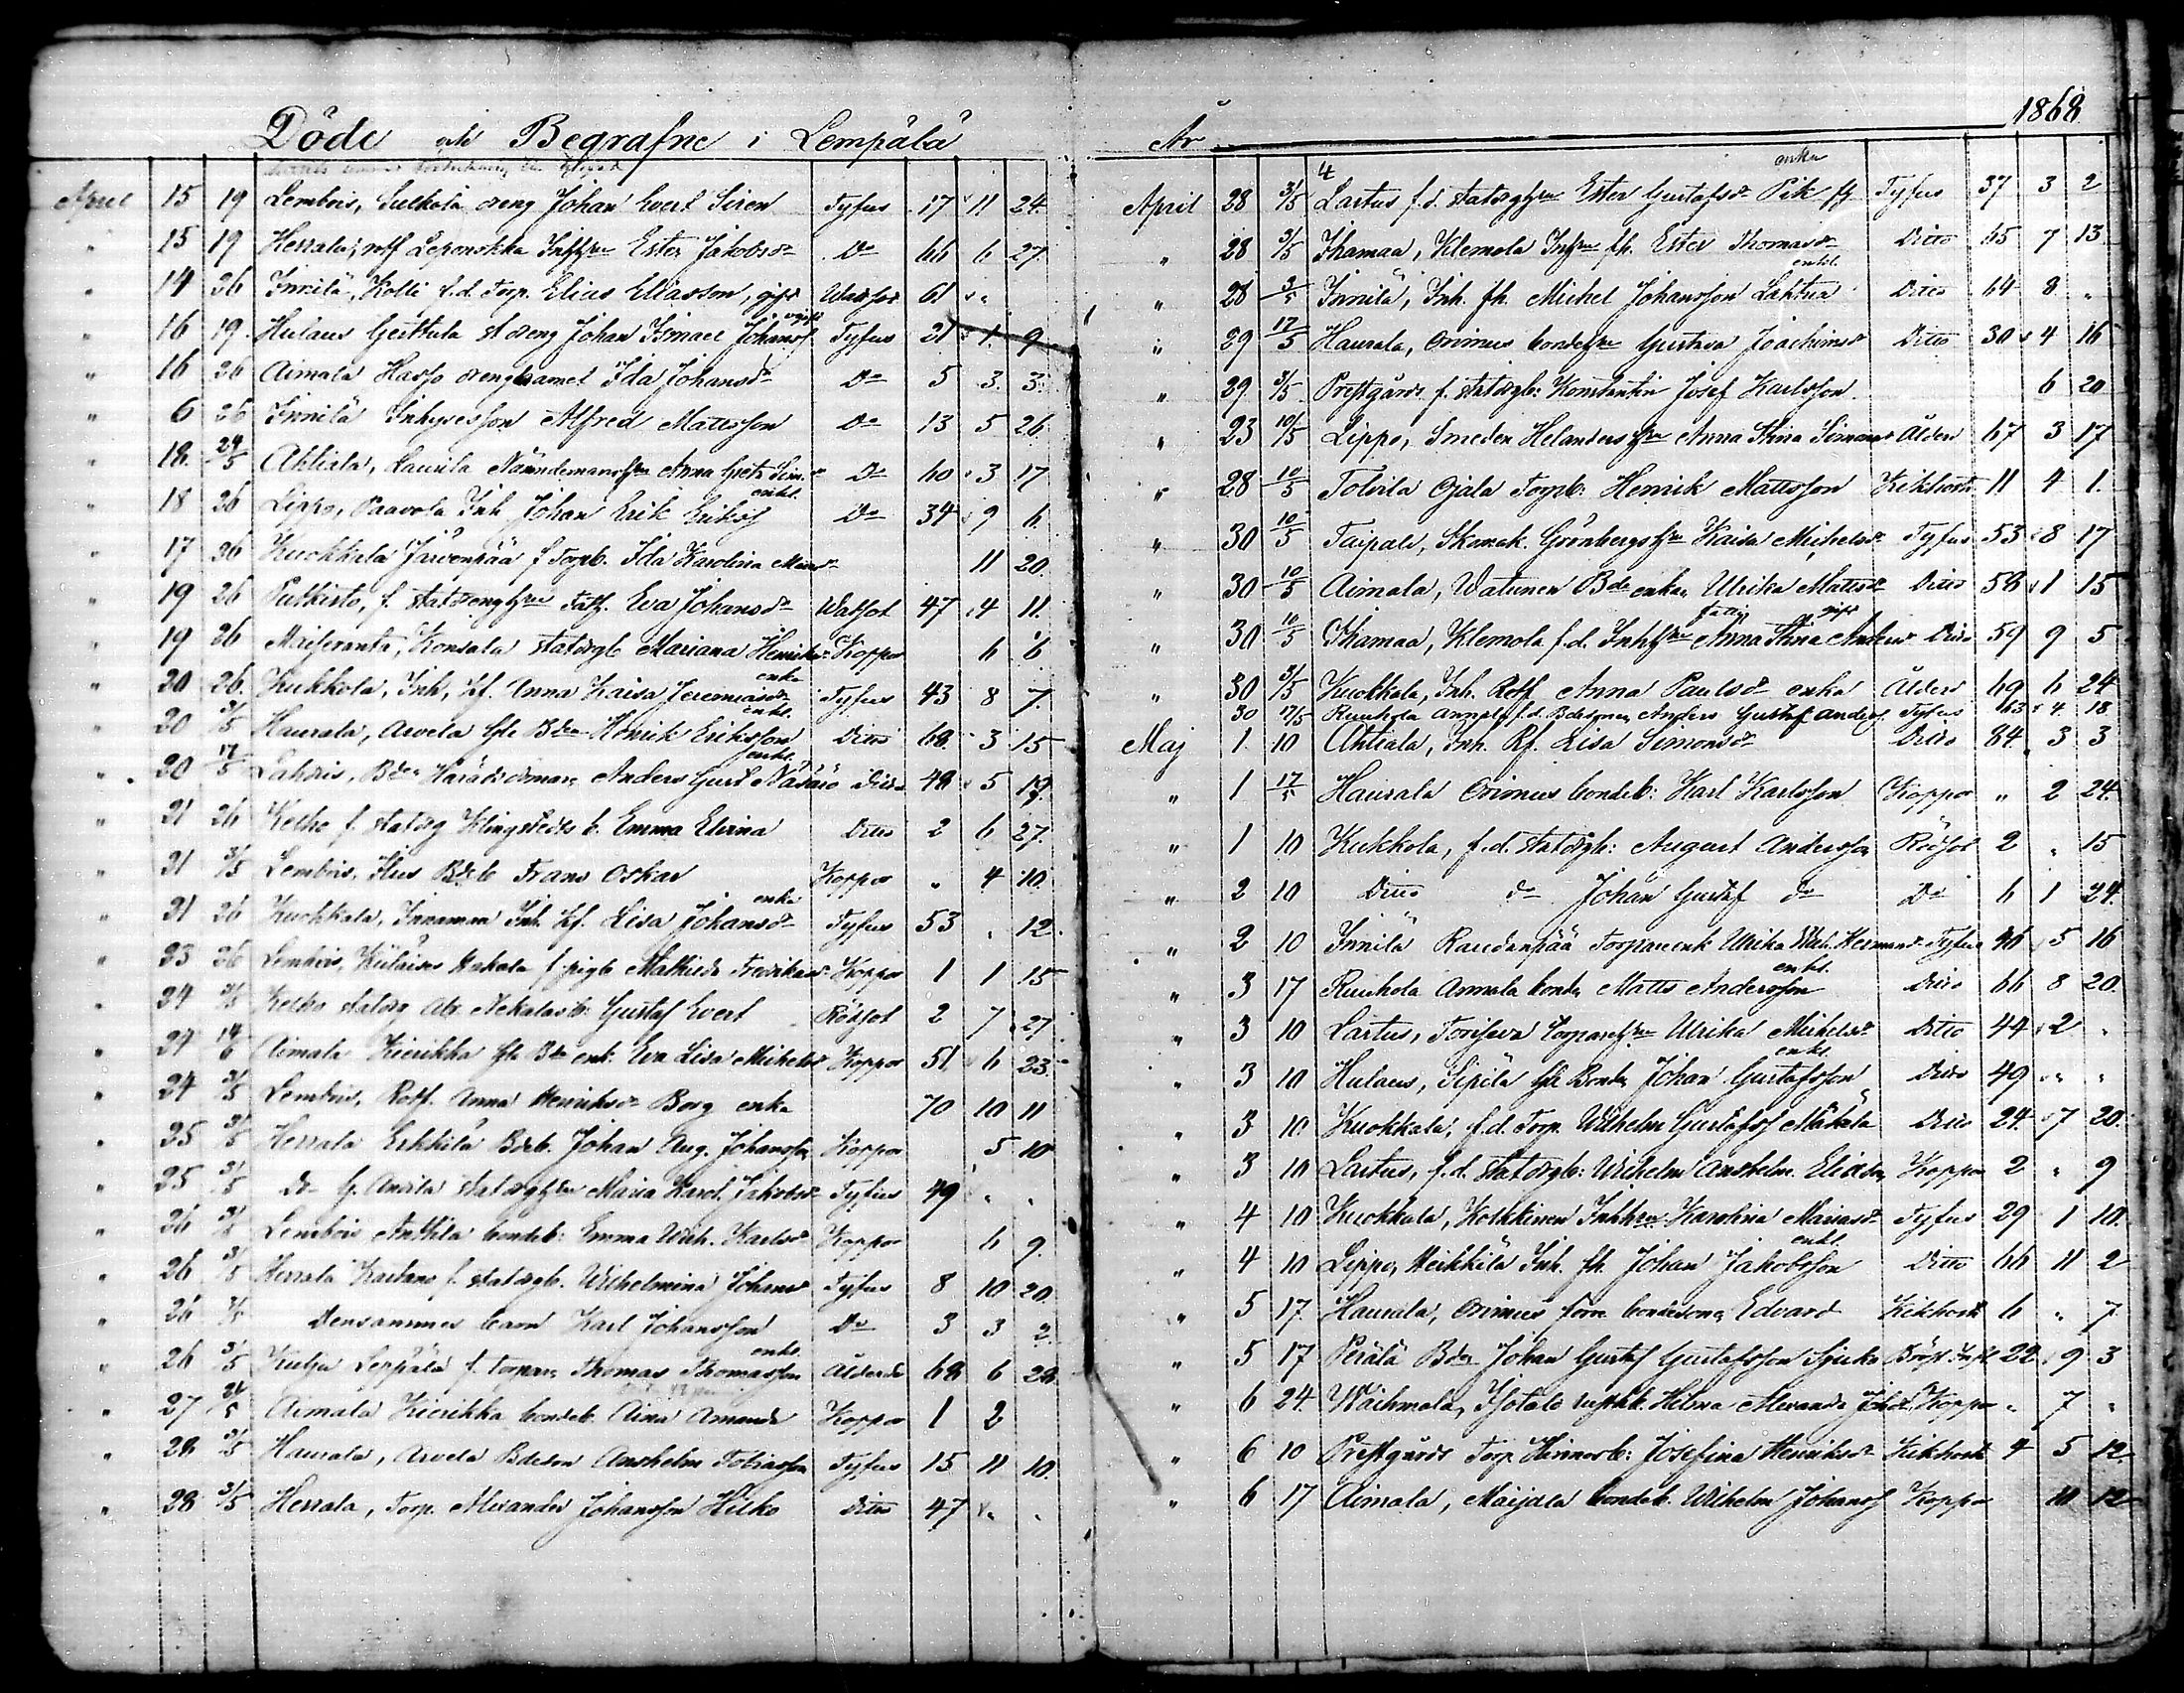 Döde och Begrafne i Lempälä
April 15 19 Lembois, Sulkola dreng Johan Evert Siren Tyfus 17 11 24.
" 15 19 Herrala, Leponokka Ester Jakobsdr Do 66 6 27
" 14 26 Innilä, Kolli f.d. Torp. Elias Eliasson, gift Watsot 61 " "
" 16 19. Hulaus Gästtula dreng Johan Ismael Johanss ogift Tyfus 21 1 9
" 16 26 Aimala Hasso drengbarnet Ida Johansdr Do 5 3. 3
" 6 26 Innilä Inhysesson Alfred Mattsson Do 13 5 26
" 18. 24/5 Ahtiala, Laurila Nämndemanshru Anna Greta Sim.dr Do 60 3 17
" 18 26 Lippo, Paavola Inh Johan Erik Erikss enkl. Do 34 9 6
" 17 26 Kuokkala Järvenpää f Torpb. Ida Karolina 11 20.
" 19 26 Putkisto, f. statdrenghru Eva Johansdr Watsot 47 4 11.
" 19 26 Maisenranta, Konsala statdrgb Mariana Henriksdr Koppor 6 6
" 20 26. Kukkola, Inh, Anna Kaisa Jeremiasdr enka Tyfus 43 8 7.
" 20 3/5 Haurala, Arvela Gle Bden Henrik Eriksson enkl. Ditto 68. 3 15
" 20 17/5 Lahdis, Bden Anders Gust Näsäiö enkl. Ditto 48 5 19
" 21 26 Kelho f. statdrg Klingstedts b. Emma Elvina Ditto 2 6 27.
" 21 3/5 Lembois, Hus Bdeb Frans Oskar Koppor " 4 10.
" 21 26 Kuokkala, Innamaa Inh. Lisa Johansdr enka Tyfus 53 " 12.
" 23 26 Lembois, Hakala f pigb Mathilda Fredrikasdr Koppor 1 1 15
" 24 3/5 Kelho statdrg Gustaf Evert Rödsot 2 7 27
" 24 14/6 Aimala Kierikka Gle Bde enk: Eva Lisa Michelsdr Koppor 51 6 23.
" 24 3/5 Lembois, Rotf. Anna Henriksdr Borg enka 70 10 11
" 25 3/5 Herrala Erkkilä Bdeb. Johan Aug. Johansson Koppor 5 10
" 25 3/5 Do G. Anvila statdrghru Maria Karol. Jakobsdr Tyfus 49 " "
" 26 3/5 Lembois Anttila bondeb: Emma Wilh. Karlsdr Koppor 6 9.
" 26 3/5 Herrala Kartano f. statdrgb. Wilhelmina Johansdr Tyfus 8 10 20.
" 26 3/5 Densammes barn Karl Johansson Do 3 3 2.
" 26 3/5 Kulju Seppälä f. torparen Thomas Thomasson enkl. Ålderdo 68 6 28.
" 27 24/5 Aimala Kierikka bondeb. Aina Amanda Koppor 1 2
" 28 3/5 Haurala, Arvela Bdeson Anshelm Tobiasson Tyfus 15 11 10.
" 28 3/5 Herrala, Torp. Alexander Johansson Hilko Ditto 47 " "
År 1868.
April 28 3/5 Lastus f.d. statdrghru Ester Gustafsdr Pik enka Tyfus 37 3 2
" 28 3/5 Thamaa, Klemola fh. Ester Thomasdr Ditto 65 7 13
" 28 3/5 Innilä, Inh. fh. Michel Johansson Lahtua enkl. Ditto 64 8 "
" 29 17/5 Haurala, Orimus bondehru Gustava Joachimsdr Ditto 30 4 16
" 29. 3/5 Prestgårds f. statdrgb: Konstantin Josef Karlsson 6 20
" 23 10/5 Lippo, Smeden Helanders hru Anna Stina Simonsdr Ålderd 67 3 17
" 28 10/5 Tolvila Ojala Torpb: Henrik Mattsson Kikhosta 11 4 1.
" 30 10/5 Taipale, Skomak. Grönbergs hru Kaisa Michelsdr Tyfus 53 8 17
" 30 10/5 Aimala, Watunen Bde enkan Ulrika Mattsdr Ditto 58 1 15
" 30 10/5 Thamaa, Klemola f.d. Anna Stina Andersdr fattig gift Ditto 59 9 5
" 30 3/5 Kuokkala, Inh. Rotf Anna Paulsdr enka Ålderd 69 6 24
30 17/5 Ruuhola Annala f.d. Bdesonen Anders Gustaf Anderss Tyfus 63 4. 18
Maj 1. 10 Ahtiala, Inh. Rf. Lisa Simonsdr Ditto 84 3 3
" 1 17/5 Haurala Orimus bondeb: Karl Karlsson Koppor " 2 24.
" 1 10 Kukkola, f.d. statdrgb: August Andersson Rödsot 2 " 15
" 2 10 Ditto do Johan Gustaf do Do 6 1 24.
" 2 10 Innilä Raudanpää Torpareenk Ulrika Wilh. Hermansdr Tyfus 46 5 16
" 3 17 Ruuhola Annala bonden Matts Andersson enkl. Ditto 66 8 20.
" 3 10 Lastus, Torpareshru Ulrika Michelsdr Ditto 44 2 "
" 3 10 Hulaus, Sipilä Gle Bonden Johan Gustafsson enkl. Ditto 49 " "
" 3 10. Kuokkala, f.d. Torp. Wilhelm Gustafss Mäkälä Ditto 24. 7 20.
" 3 10 Lastus, f.d. statdrgb: Wilhelm Anshelm Eliasson Koppor 2 " 9
" 4 10 Kuokkala, Koskkinen Inhhru Karolina Mariasdr Tyfus 29 1 10.
" 4 10 Lippo, Heikkilä Inh. fh. Johan Jakobsson enkl. Ditto 66 11 2
" 5 17. Haurala, Orimus bondesonen Edvard Kikhosta 6 " 7
" 5 17 Perälä Bden Johan Gustaf Gustafsson Sjuka Bröst Infl. 22 9 3
" 6 24 Wäihmalä, Isotalo Helena Alexandra Koppor " 7 "
" 6 10 Prestgårds Torp Hinnerb: Josefina Henriksdr Kikhosta 4 5 12
" 6 17 Aimala, Maijala bondeb. Wilhelm Johanss Koppor 10 12